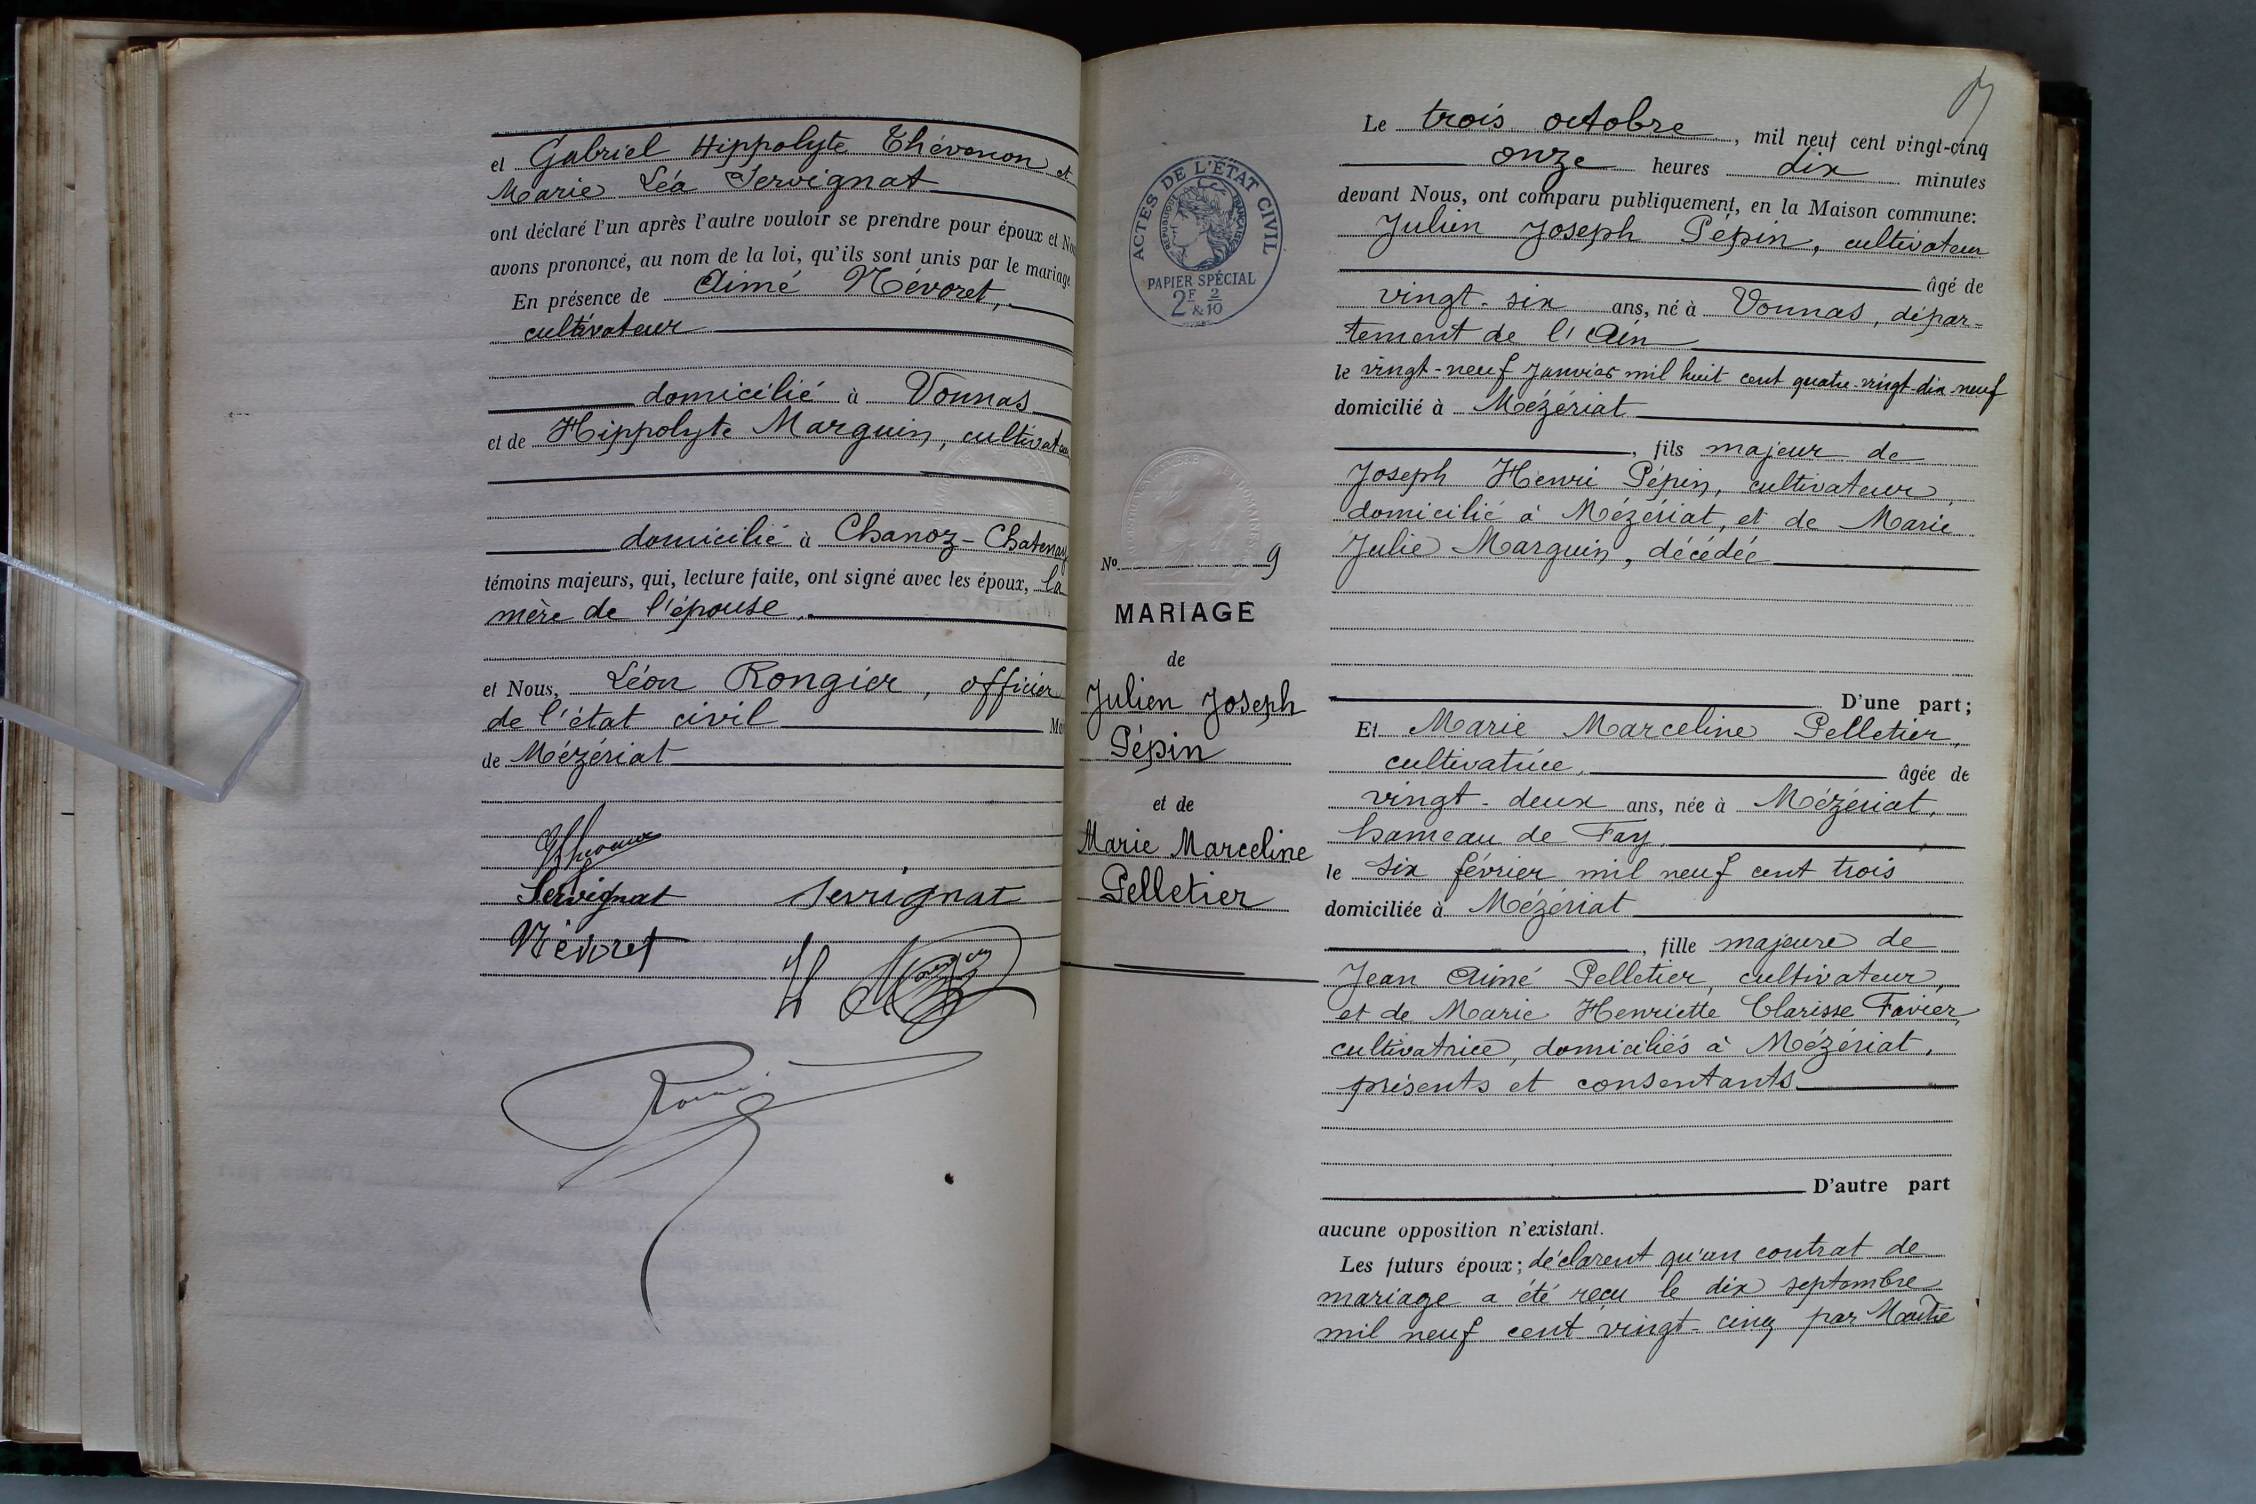 et Gabriel Hippolyte Thévenon et
Marie Léa Servignat
ont déclaré l'un après l'autre vouloir se prendre pour époux et Nou
avons prononcé, au nom de la loi, qu'ils sont unis par le mariage
En présence de Aimé Névoret,
cultivateur
domicilié à Vonnas
et de Hippolyte Marguin, cultivateur
domicilié à Chanoz-Chatenay
témoins majeurs, qui, lecture faite, ont signé avec les époux, la
mère de l'épouse.
et Nous, Léon Rongier, officier
de l'état civil Ma
de Mézériat
Servignat Servignat
Névoret
ACTES DE L'ÉTAT CIVIL
RÉPUBLIQUE FRANÇAISE
PAPIER SPÉCIAL
2F & 2/10
No 9
MARIAGE
de
Julien Joseph
Pépin
et de
Marie Marceline
Pelletier
Le trois octobre, mil neuf cent vingt-cinq
onze heures dix minutes
devant Nous, ont comparu publiquement, en la Maison commune:
Julien Joseph Pépin, cultivateur
âgé de
vingt-six ans, né à Vonnas, dépar-
tement de l'Ain
le vingt-neuf Janvier mil huit cent quatre-vingt-dix-neuf
domicilié à Mézériat
, fils majeur de
Joseph Henri Pépin, cultivateur,
domicilié à Mézériat, et de Marie
Julie Marguin, décédée
D'une part;
Et Marie Marceline Pelletier,
cultivatrice, âgée de
vingt-deux ans, née à Mézériat,
hameau de Fay,
le six février mil neuf cent trois
domiciliée à Mézériat
, fille majeure de
Jean Aimé Pelletier, cultivateur,
et de Marie Henriette Clarisse Favier,
cultivatrice, domiciliés à Mézériat,
présents et consentants
D'autre part
aucune opposition n'existant.
Les futurs époux; déclarent qu'un contrat de
mariage a été reçu le dix septembre
mil neuf cent vingt-cinq par Maître